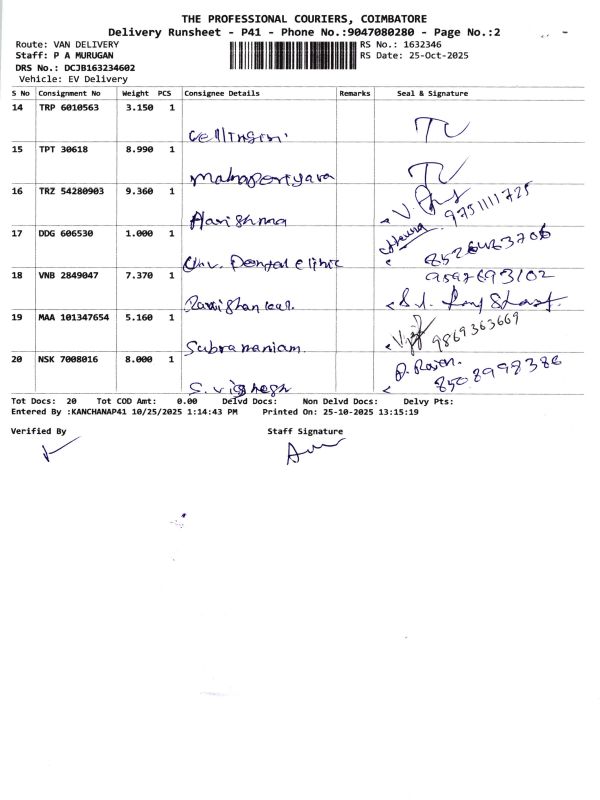 THE PROFESSIONAL COURIERS, COIMBATORE
Delivery Runsheet - P41 - Phone No.:9047080280 - Page No.:2
Route: VAN DELIVERY RS No.: 1632346
Staff: P A MURUGAN RS Date: 25-Oct-2025
DRS No.: DCJB163234602
Vehicle: EV Delivery
S No Consignment No Weight PCS Consignee Details Remarks Seal & Signature
14 TRP 6010563 3.150 1
15 TPT 30618 8.990 1
16 TRZ 54280903 9.360 1 9751111725
17 DDG 606530 1.000 1 Dental clinic
18 VNB 2849047 7.370 1 Ravishankar 9597693102
19 MAA 101347654 5.160 1 Subramaniam. 9869363669
20 NSK 7008016 8.000 1 S. vignesh
Tot Docs: 20 Tot COD Amt: 0.00 Delvd Docs: Non Delvd Docs: Delvy Pts:
Entered By :KANCHANAP41 10/25/2025 1:14:43 PM Printed On: 25-10-2025 13:15:19
Verified By Staff Signature